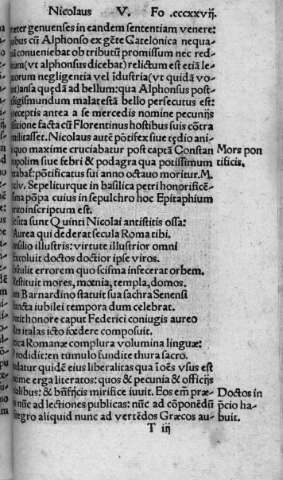 Nicolaus V. Fo .cccxxvij.
preter genuenses in eandem sententiam venere:
ibus cũ Alphonso ex gẽte Gatelõnica nequa-
conueniebat ob tributũ promissum nec red-
um(vt alphonsus dicebat) relictum est etiã le-
orum negligentia vel ĩdustria(vt quidã vo-
nt)ansa quędã ad bellum: qua Alphonsus post-
sigismundum malatestã bello persecutus est:
ceptis antea a se mercedis nomine pecunijs
sitione facta cũ Florentinus hostibus suis cõtra
militasset. Nicolaus autẽ põtifex siue tędio ani-
quo maxime cruciabatur post captã Constan Mors pon
nopolim siue febri & podagra qua potissimum tificis.
rabat: põtificatus sui anno octauo moritur. M.
.lv. Sepeliturque in basilica petri honorificẽ-
ima põpa cuius in sepulchro hoc Epitaphium
rsu inscriptum est.
sita sunt Quinti Nicolai antistitis ossa:
Aurea qui dederat secula Roma tibi.
nsilio illustris: virtute illustrior omni
xcoluit doctos doctior ipse viros.
bstulit errorem quo scisma infecerat orbem.
estituit mores, mœnia, templa, domos.
m Barnardino statuit sua sachra Senensi
ancta iubilei tempora dum celebrat.
nxit honore caput Federici coniugis aureo
es italas icto fœdere composuit.
tica Romanæ complura volumina linguæ:
Prodidit: en tumulo fundite thura sacro.
udatur quidẽ eius liberalitas qua ĩ oẽs vsus est
xime erga literatos: quos & pecunia & officijs
ialibus: & bñficijs mirifice iuuit. Eos em̃ præ- Doctos in
is nũc ad lectiones publicas: nũc ad cõponẽdũ p̃cio ha-
tegro aliquid nunc ad vertẽdos Græcos au- buit.
T iij